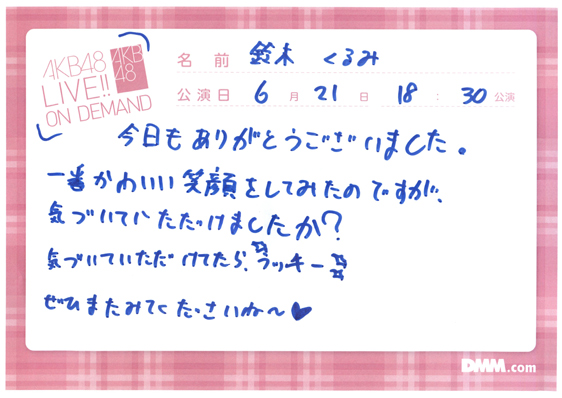 AKB48
LIVE!!
ON DEMAND
AKB
48
名前 鈴木 くるみ
公演日 6月21日 18:30公演
今日もありがとうございました。
一番かわいい笑顔をしてみたのですが、
気づいていただけましたか?
気づいていただけてたら、ラッキー
ぜひまたみてくださいね〜♥
DMM.com